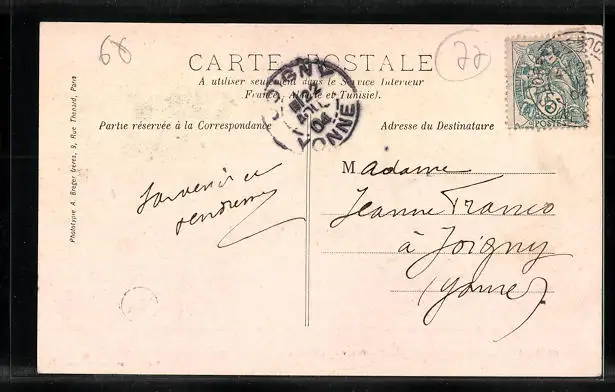 68
22
CARTE POSTALE
A utiliser seulement dans le Service Interieur
France, Algérie et Tunisie).
Partie réservée à la Correspondance
Adresse du Destinataire
JOIGNY
22
AOUT
04
YONNE
5
POSTES
Phototypie A. Breger frères, 9, Rue Thénard, Paris
Souvenir
Madame
Jeanne Franco
à Joigny
(Yonne)